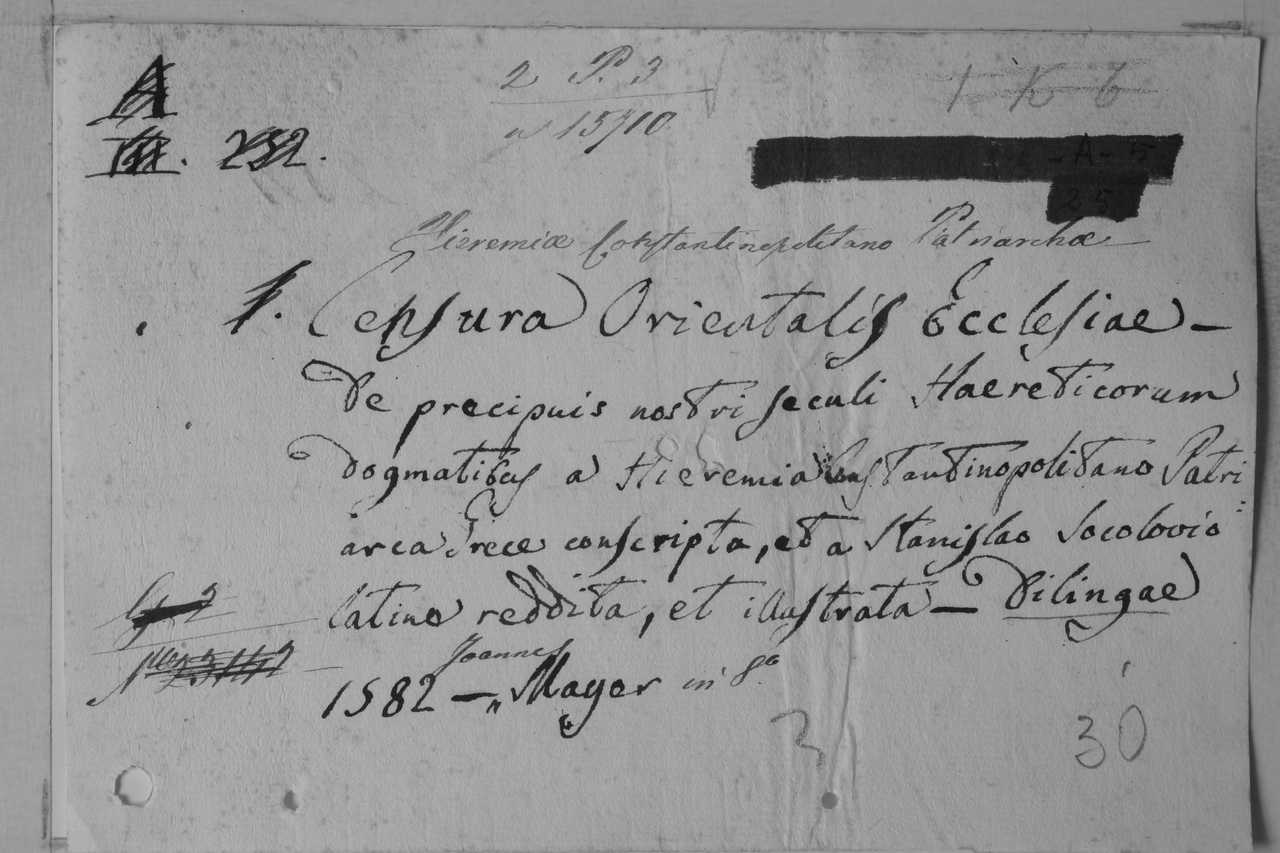 A
2 P. 3
1 K 6
III. 232.
n 15710
- A - 5
25
Hieremiae Constantinopolitano Patriarchae
1. Censura Orientalis Ecclesiae -
De precipuis nostri seculi Haereticorum
dogmatibus a Hieremia Constantinopolitano Patri
arca Grece conscripta, et a Stanislao Socolovio
latine reddita, et illustrata - Dilingae
Joannes
1582 - „ Mayer in 8.º
3
30